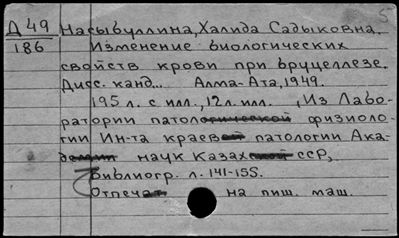 Д 49
186
Насыбуллина, Халида Садыковна.
Изменение биологических
свойств крови при бруцеллезе.
Дисс. канд... Алма-Ата, 1949.
195 л. с илл., 12 л. илл. , Из Лабо-
ратории патологической физиоло-
гии Ин-та краевой патологии Ака-
демии наук Казахской ССР,
Библиогр. л. 141-155.
Отпечат на пиш. маш.
5